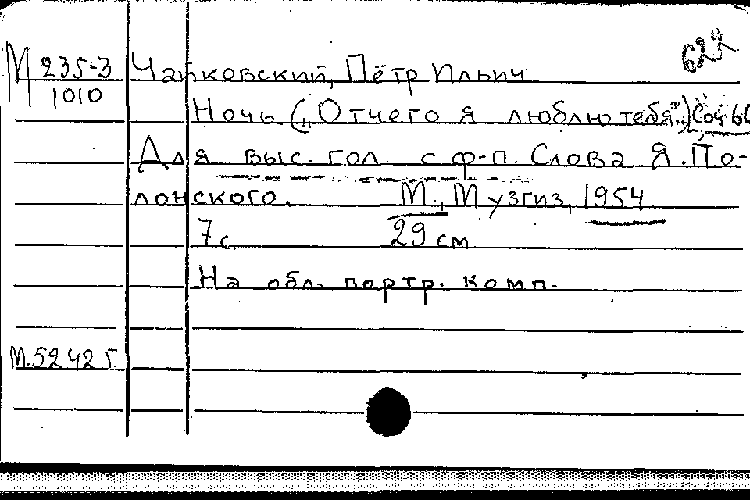 622
М 235-3 Чайковский, Пётр Ильич
1010
Ночь („Отчего я люблю тебя..") Соч 60
Для выс. гол. с ф-п. Слова Я. По-
лонского. М., Музгиз, 1954
7 с. 29 см.
На обл. портр. комп.
М.52425